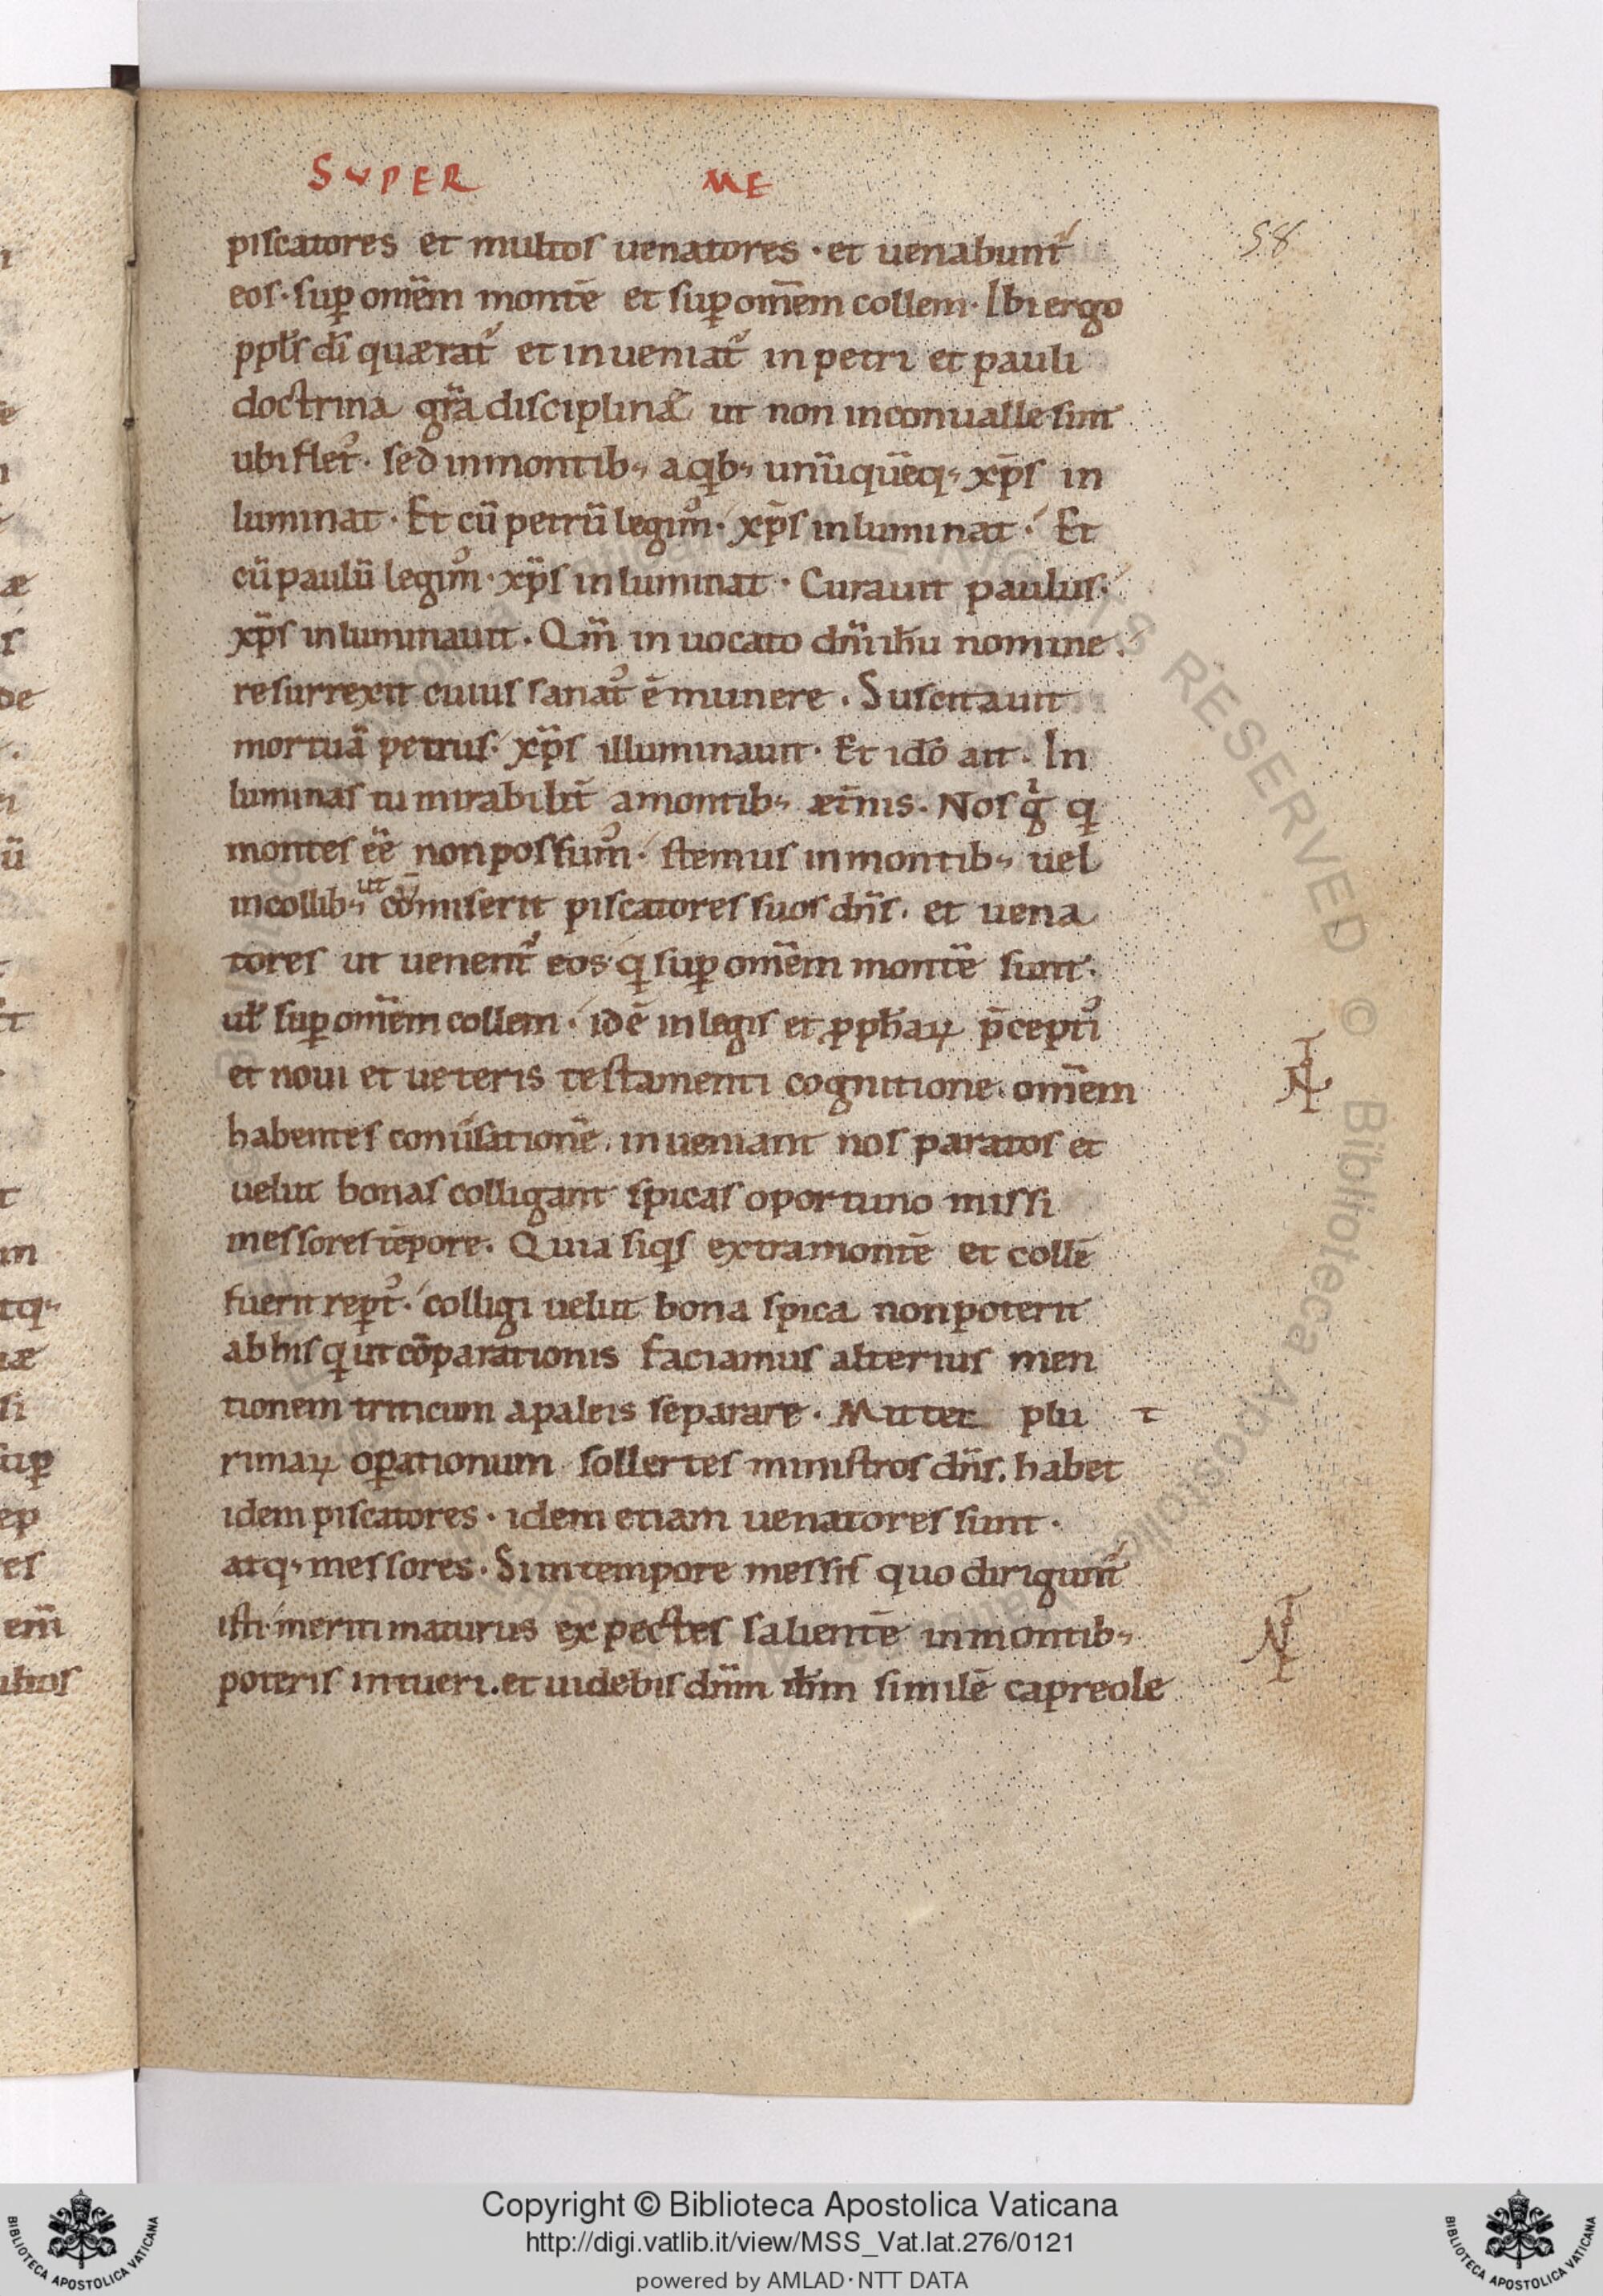 SVPER ME
58
piscatores et multos uenatores · et uenabunt᷑
eos · sup̱ om̄em montē et sup̱ om̄em collem · Ibi ergo
ppl̄s dī quærat᷑ et inueniat᷑ in petri et pauli
doctrina gr̄a disciplinæ ut non in conualle sint
ubi flet᷑ · sed in montib; a qb; unūquēq; xp̄s in
luminat · Et cū petrū legim᷒ · xp̄s inluminat · Et
cū paulū legim᷒ · xp̄s inluminat · Curauit paulus ·
xp̄s inluminauit · Qm̄ inuocato dn̄i ih̄u nomine ·
resurrexit cuius sanat᷒ ē munere · Suscitauit
mortuā petrus · xp̄s illuminauit · Et idō ait · In
luminas tu mirabilit̄ a montib; æt̄nis · Nos g̊ q
montes eē non possum᷒ · stemus in montib; uel
in collib; ut cō miserit piscatores suos dn̄s · et uena
tores ut uenent᷑ eos q sup̱ om̄em montē sunt ·
ul̄ sup̱ om̄em collem · id ē in legis et pph̄aꝝ p̄cepti᷒
et noui et ueteris testamenti cognitione · om̄em
habentes conūsationē · inueniant nos paratos et
uelut bonas colligant spicas oportuno missi
messores tēpore · Quia siqs extra montē et collē
fuerit rep̱t᷒ · colligi uelut bona spica non poterit
ab his q ut cōparationis faciamus alterius men
tionem triticum a paleis separare · Mittet plu
t
rimaꝝ op̱ationum sollertes ministros dn̄s · habet
idem piscatores · idem etiam uenatores sunt ·
atq; messores · Si in tempore messis quo dirigunt᷑
isti meriti maturus expectes salientē in montib;
poteris intueri · et uidebis dn̄m ih̄m similē capreole
Copyright © Biblioteca Apostolica Vaticana
http://digi.vatlib.it/view/MSS_Vat.lat.276/0121
powered by AMLAD·NTT DATA
BIBLIOTECA APOSTOLICA VATICANA
BIBLIOTECA APOSTOLICA VATICANA